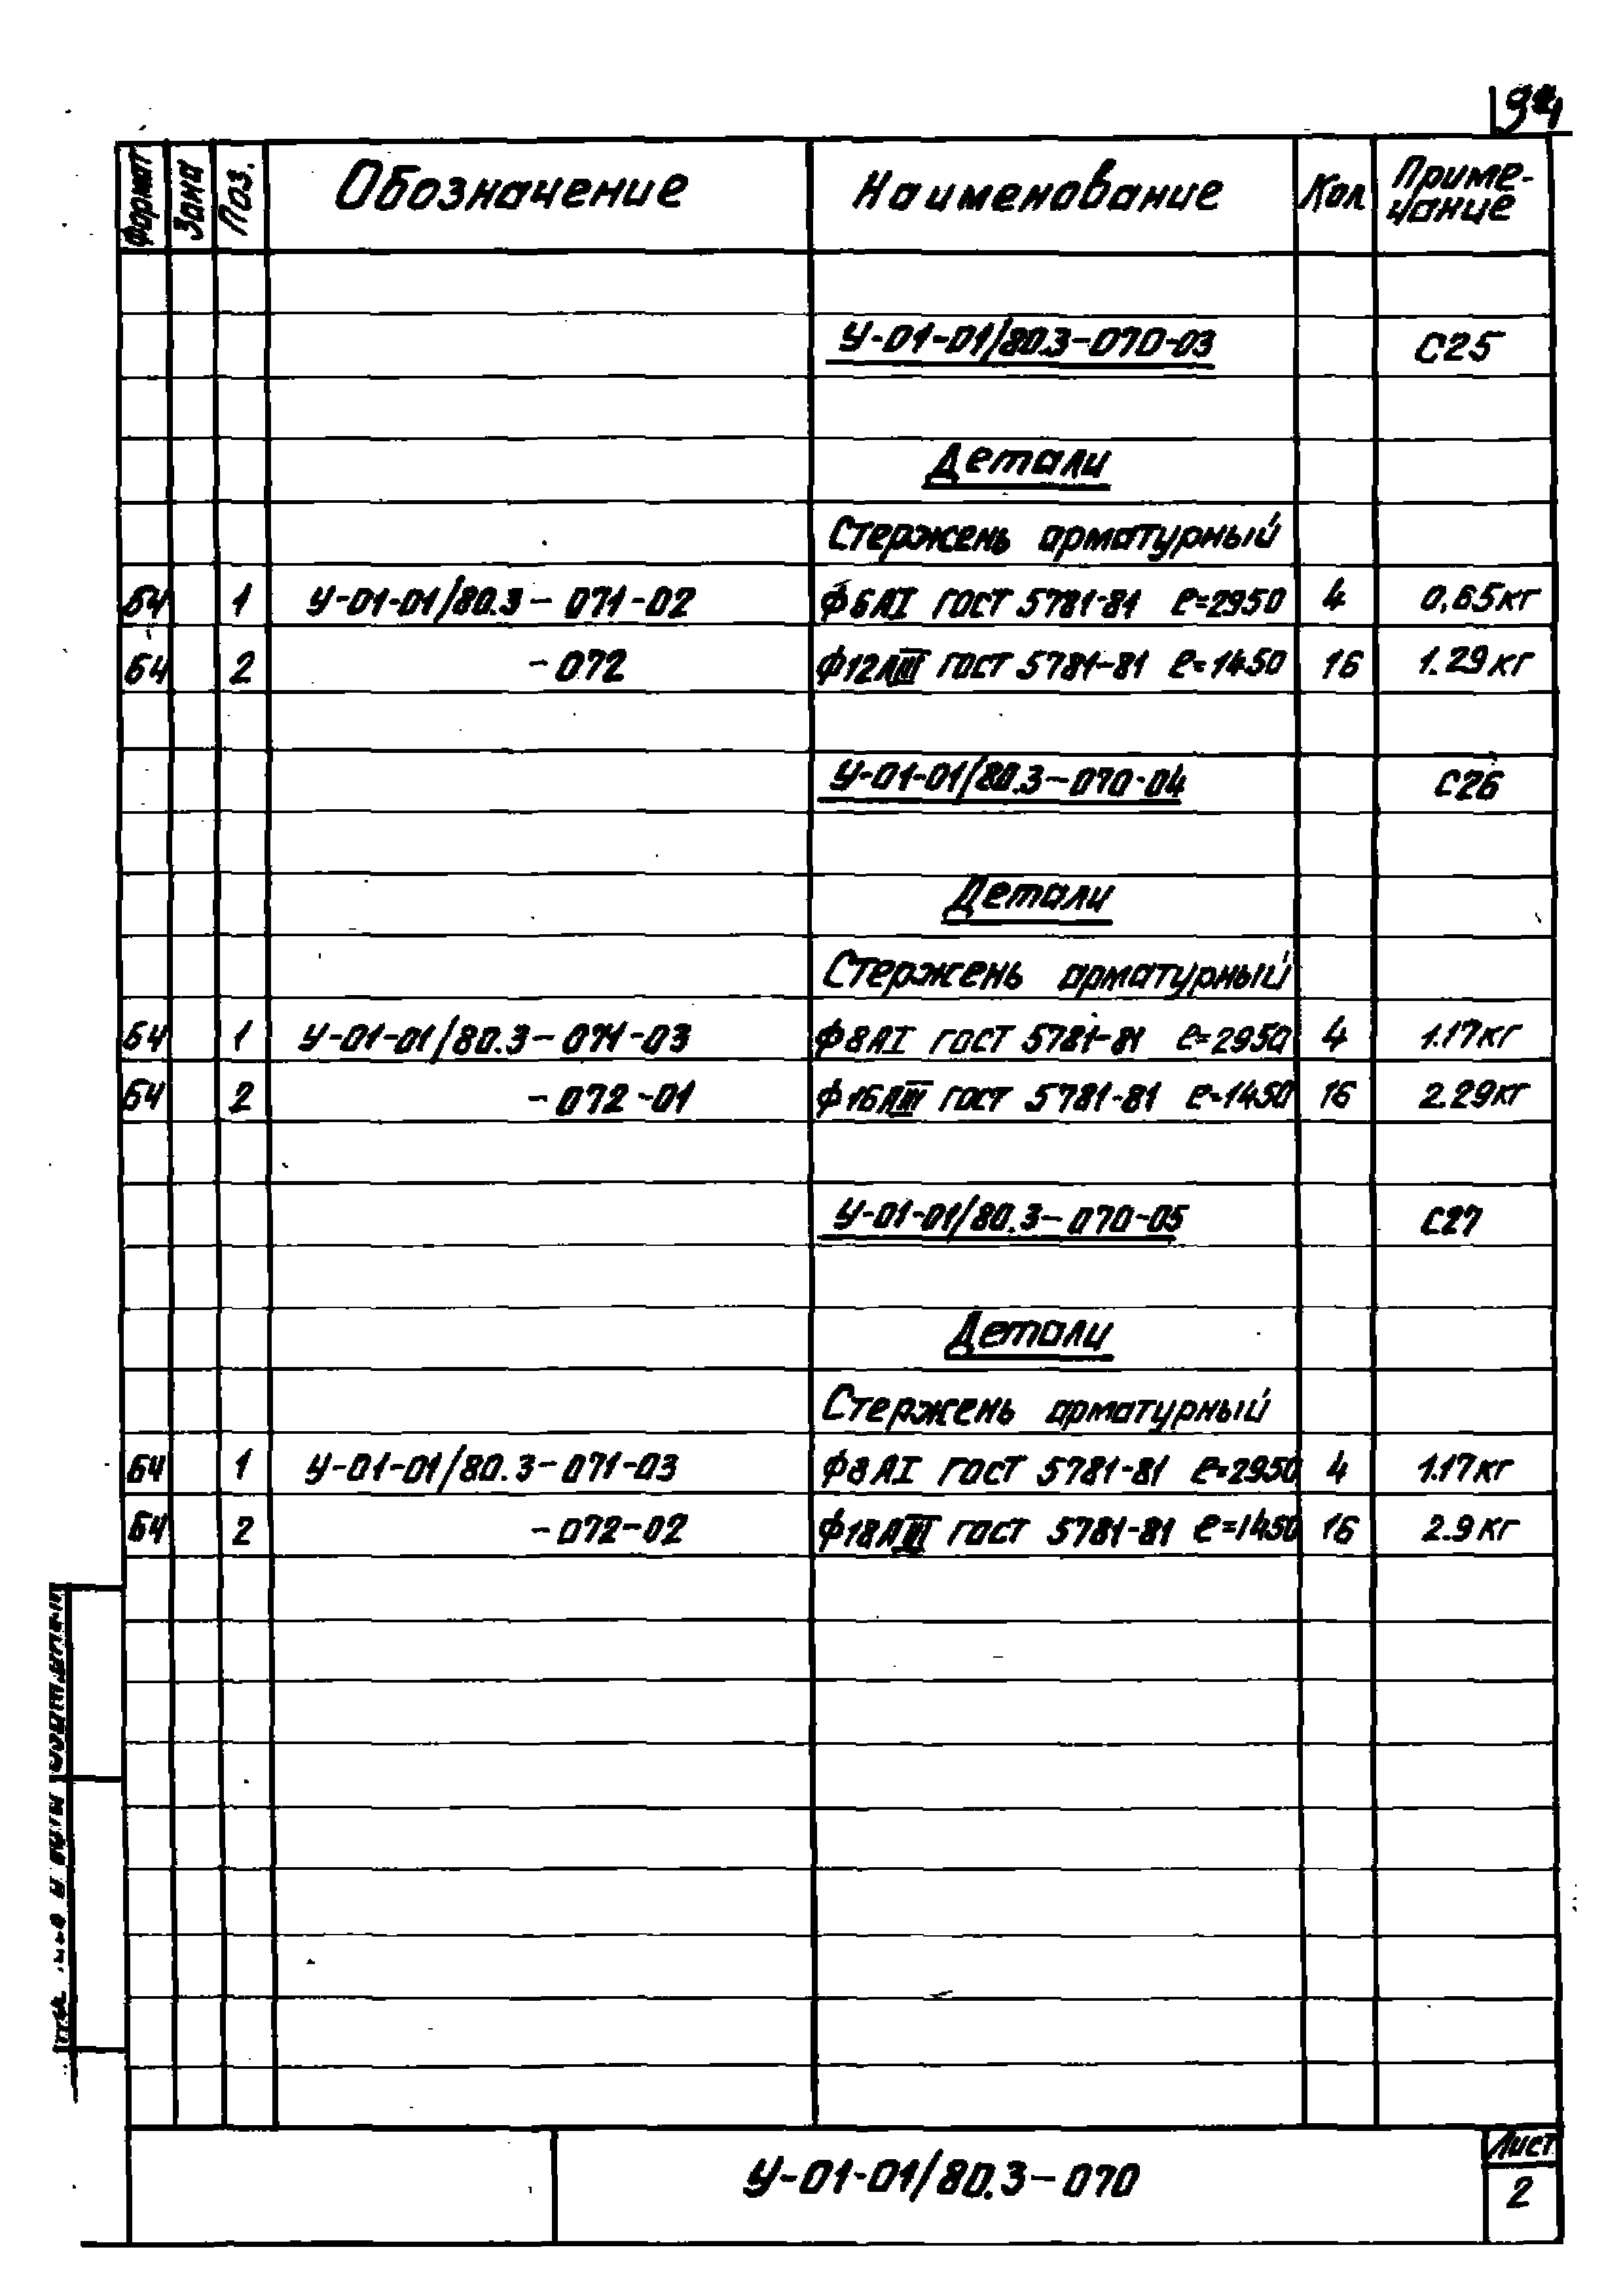 Формат Зона Поз. Обозначение Наименование Кол Приме-
чание
У-01-01/80.3-070-03 С25
Детали
Стержень арматурный
БЧ 1 У-01-01/80.3-071-02 Ф6АI ГОСТ 5781-81 ℓ=2950 4 0,65кг
БЧ 2 -072 Ф12АIII ГОСТ 5781-81 ℓ=1450 16 1.29кг
У-01-01/80.3-070-04 С26
Детали
Стержень арматурный
БЧ 1 У-01-01/80.3-071-03 Ф8АI ГОСТ 5781-81 ℓ=2950 4 1.17кг
БЧ 2 -072-01 Ф16АIII ГОСТ 5781-81 ℓ=1450 16 2.29кг
У-01-01/80.3-070-05 С27
Детали
Стержень арматурный
БЧ 1 У-01-01/80.3-071-03 Ф8АI ГОСТ 5781-81 ℓ=2950 4 1.17кг
БЧ 2 -072-02 Ф18АIII ГОСТ 5781-81 ℓ=1450 16 2.9кг
У-01-01/80.3-070
Лист
2